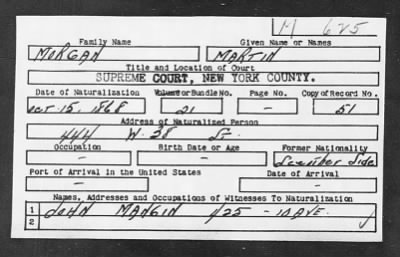 M 625
Family Name Given Name or Names
MORGAN MARTIN
Title and Location of Court
SUPREME COURT, NEW YORK COUNTY.
Date of Naturalization Volume or Bundle No. Page No. Copy of Record No.
Oct. 15, 1868 21 - 51
Address of Naturalized Person
444 W. 38 St.
Occupation Birth Date or Age Former Nationality
- - See other Side
Port of Arrival in the United States Date of Arrival
- -
Names, Addresses and Occupations of Witnesses To Naturalization
1 JOHN MANGIN 425 - 10 AVE.
2